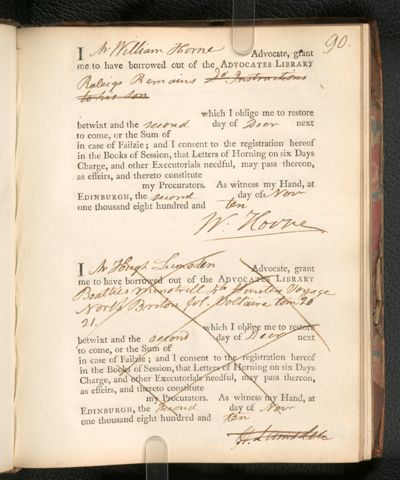 90.
I Mr William Horne Advocate, grant
me to have borrowed out of the ADVOCATES LIBRARY
Raleigs Remains Do Instructions
to his son
which I oblige me to restore
betwixt and the second day of Decr next
to come, or the Sum of
in case of Failzie; and I consent to the registration hereof
in the Books of Session, that Letters of Horning on six Days
Charge, and other Executorials needful, may pass thereon,
as effeirs, and thereto constitute
my Procurators. As witness my Hand, at
EDINBURGH, the second day of Novr
one thousand eight hundred and ten
W. Horne
I Mr Hugh Lumsden Advocate, grant
me to have borrowed out of the ADVOCATES LIBRARY
Beatties Minstrell Hunters Voyage
North Briton Vol. Voltaire tom 20
21.
which I oblige me to restore
betwixt and the second day of Decr next
to come, or the Sum of
in case of Failzie; and I consent to the registration hereof
in the Books of Session, that Letters of Horning on six Days
Charge, and other Executorials needful, may pass thereon,
as effeirs, and thereto constitute
my Procurators. As witness my Hand, at
EDINBURGH, the second day of Novr
one thousand eight hundred and ten
H. Lumsden